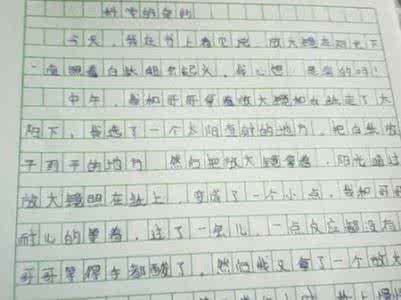 科学的奥妙
今天，我在书上看见：放大镜在阳光下
一直照着白纸能起火，我心想：是真的吗？
中午，我和哥哥拿着放大镜和白纸走了太
阳下，我选了一个太阳直射的地方，把白纸放
子到干的地方，然后把放大镜拿着，阳光通过
放大镜照在纸上，变成了一个小点，我和哥哥
耐心的拿着，过了一会儿，一点反应都没有
哥哥拿得手都酸了，然后我又拿了一个放大